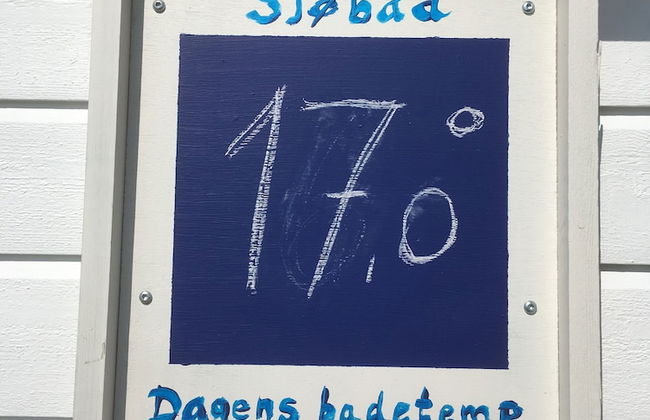 Sjøbad
17,0°
Dagens badetemp